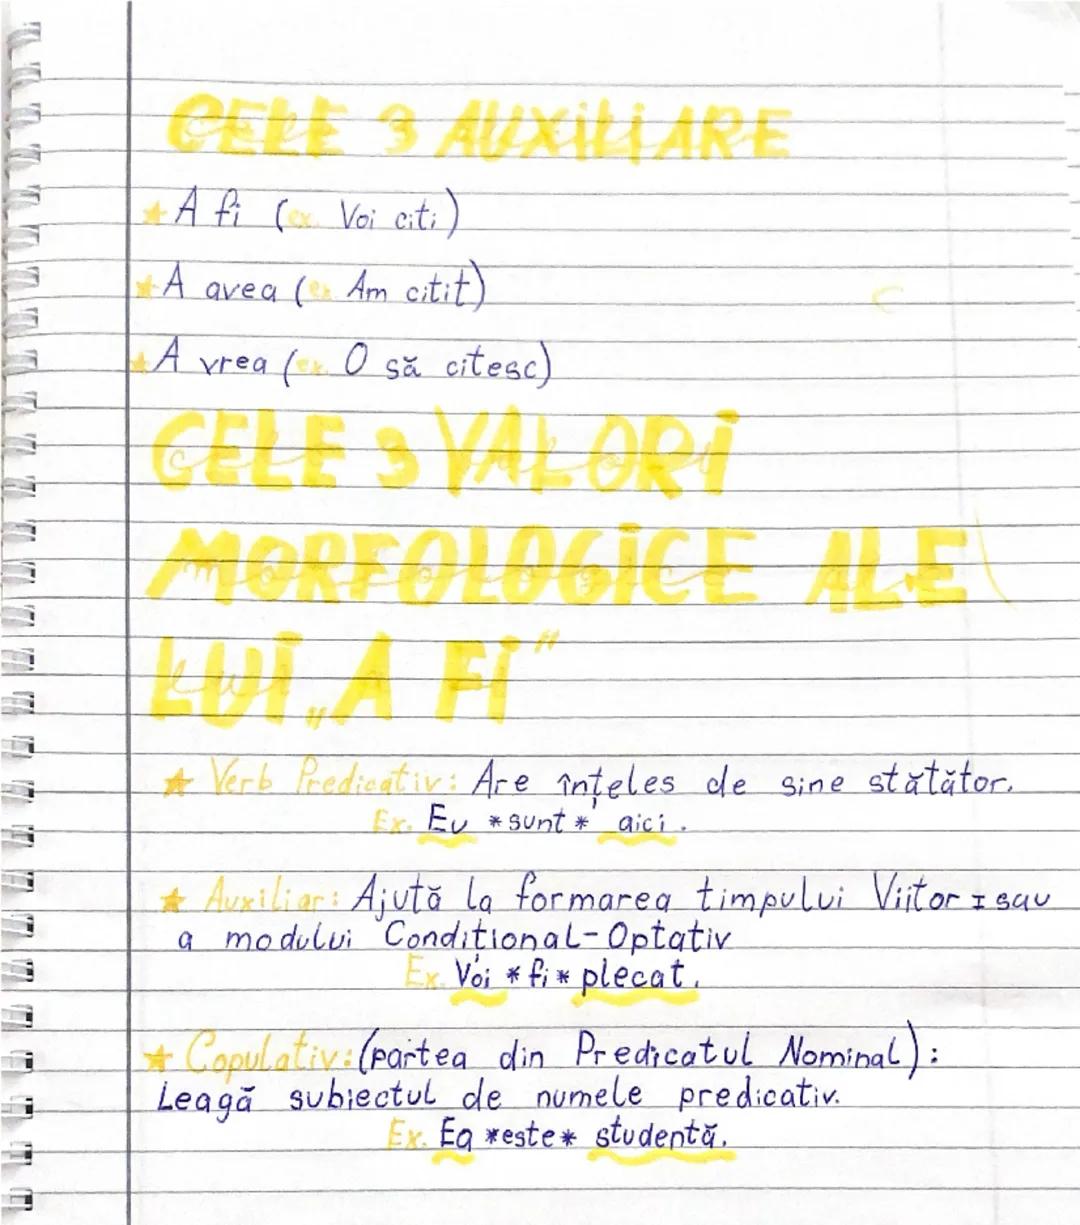 CELE 3 AUXILIARE
★ A fi (ex. Voi citi)
★ A avea (ex. Am citit)
★ A vrea (ex. O să citesc)
CELE 3 VALORI
MORFOLOGICE ALE
LUI „A FI"
★ Verb Predicativ: Are înțeles de sine stătător.
Ex. Eu *sunt* aici.
★ Auxiliar: Ajută la formarea timpului Viitor I sau
a modului Condițional-Optativ
Ex. Voi *fi* plecat.
★ Copulativ: (partea din Predicatul Nominal):
Leagă subiectul de numele predicativ.
Ex. Ea *este* studentă.